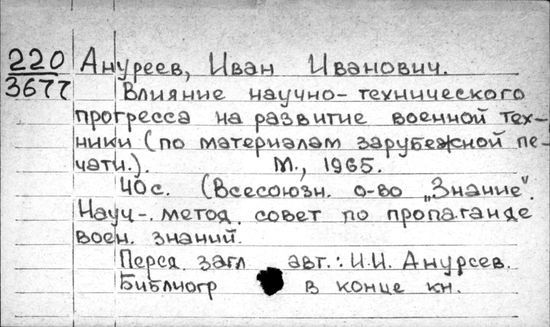 220 Ануреев, Иван Иванович.
3677 Влияние научно-технического
прогресса на развитие военной тех-
ники (по материалам зарубежной пе-
чати.). М., 1965.
40с. (Всесоюзн. о-во „Знание".
Науч-. метод. совет по пропаганде
воен. знаний.
Перед загл авт.: И.И. Ануреев.
Библиогр в конце кн.